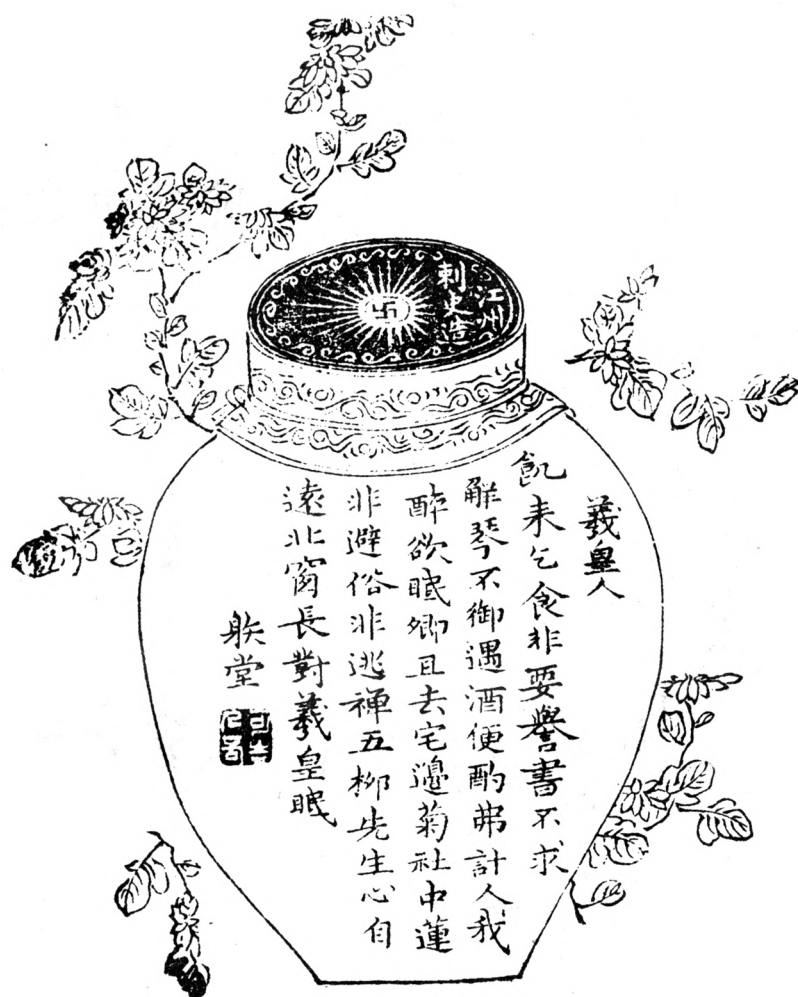 江州
刺史造
羲皇人
飢来乞食非要譽書不求
解琴不御遇酒便酌弗計人我
醉欲眠卿且去宅邊菊社中蓮
非避俗非逃禅五柳先生心自
遠北窗長對羲皇眠
躲堂